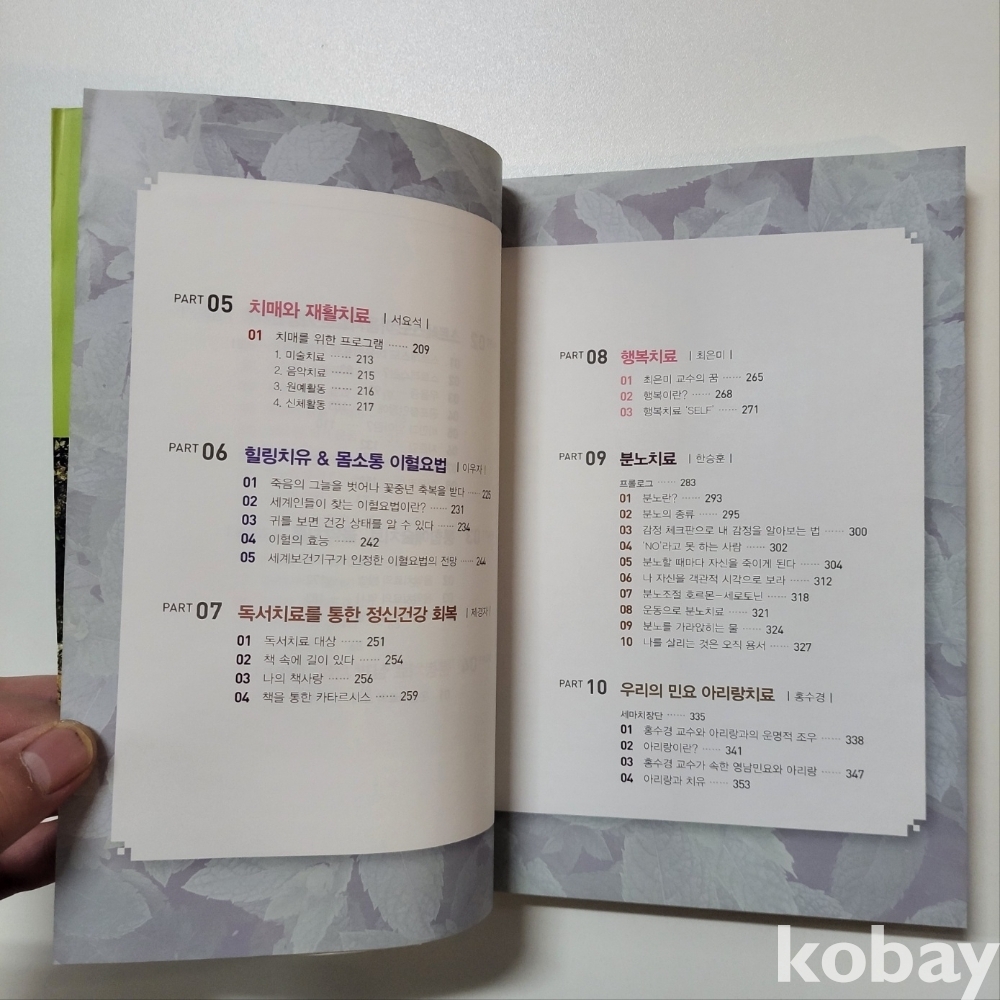 PART 05 치매와 재활치료 | 서요석 |
01 치매를 위한 프로그램 ······ 209
1. 미술치료 ······ 213
2. 음악치료 ······ 215
3. 원예활동 ······ 216
4. 신체활동 ······ 217
PART 06 힐링치유 & 몸소통 이혈요법 | 이우자 |
01 죽음의 그늘을 벗어나 꽃중년 축복을 받다 ······ 225
02 세계인들이 찾는 이혈요법이란? ······ 231
03 귀를 보면 건강 상태를 알 수 있다 ······ 234
04 이혈의 효능 ······ 242
05 세계보건기구가 인정한 이혈요법의 전망 ······ 244
PART 07 독서치료를 통한 정신건강 회복 | 제경자 |
01 독서치료 대상 ······ 251
02 책 속에 길이 있다 ······ 254
03 나의 책사랑 ······ 256
04 책을 통한 카타르시스 ······ 259
PART 08 행복치료 | 최은미 |
01 최은미 교수의 꿈 ······ 265
02 행복이란? ······ 268
03 행복치료 'SELF' ······ 271
PART 09 분노치료 | 한승훈 |
프롤로그 ······ 283
01 분노란? ······ 293
02 분노의 종류 ······ 295
03 감정 체크판으로 내 감정을 알아보는 법 ······ 300
04 'NO'라고 못 하는 사람 ······ 302
05 분노할 때마다 자신을 죽이게 된다 ······ 304
06 나 자신을 객관적 시각으로 보라 ······ 312
07 분노조절 호르몬-세로토닌 ······ 318
08 운동으로 분노치료 ······ 321
09 분노를 가라앉히는 물 ······ 324
10 나를 살리는 것은 오직 용서 ······ 327
PART 10 우리의 민요 아리랑치료 | 홍수경 |
세마치장단 ······ 335
01 홍수경 교수와 아리랑과의 운명적 조우 ······ 338
02 아리랑이란? ······ 341
03 홍수경 교수가 속한 영남민요와 아리랑 ······ 347
04 아리랑과 치유 ······ 353
kobay